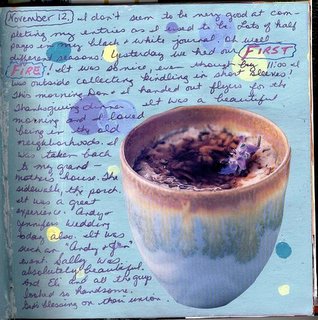 November 12, I don't seem to be very good at com-
pleting my entries as I used to be. Lots of half
pages in my black & white journal. Oh well
different seasons. Yesterday we had our FIRST
FIRE! It was so nice, even though by 11:00 I
was outside collecting kindling in short sleeves!
This morning Don & I handed out flyers for the
Thanksgiving dinner. It was a beautiful
morning and I loved
being in the old
neighborhoods. I
was taken back
to my grand-
mother's house. The
sidewalk, the porch.
It was a great
experience. Andy &
Jennifer's wedding
today also. It was
such an "Andy & Jen"
event. Sally was
absolutely beautiful
And Eli and all the guys
looked so handsome.
God's blessing on their union.